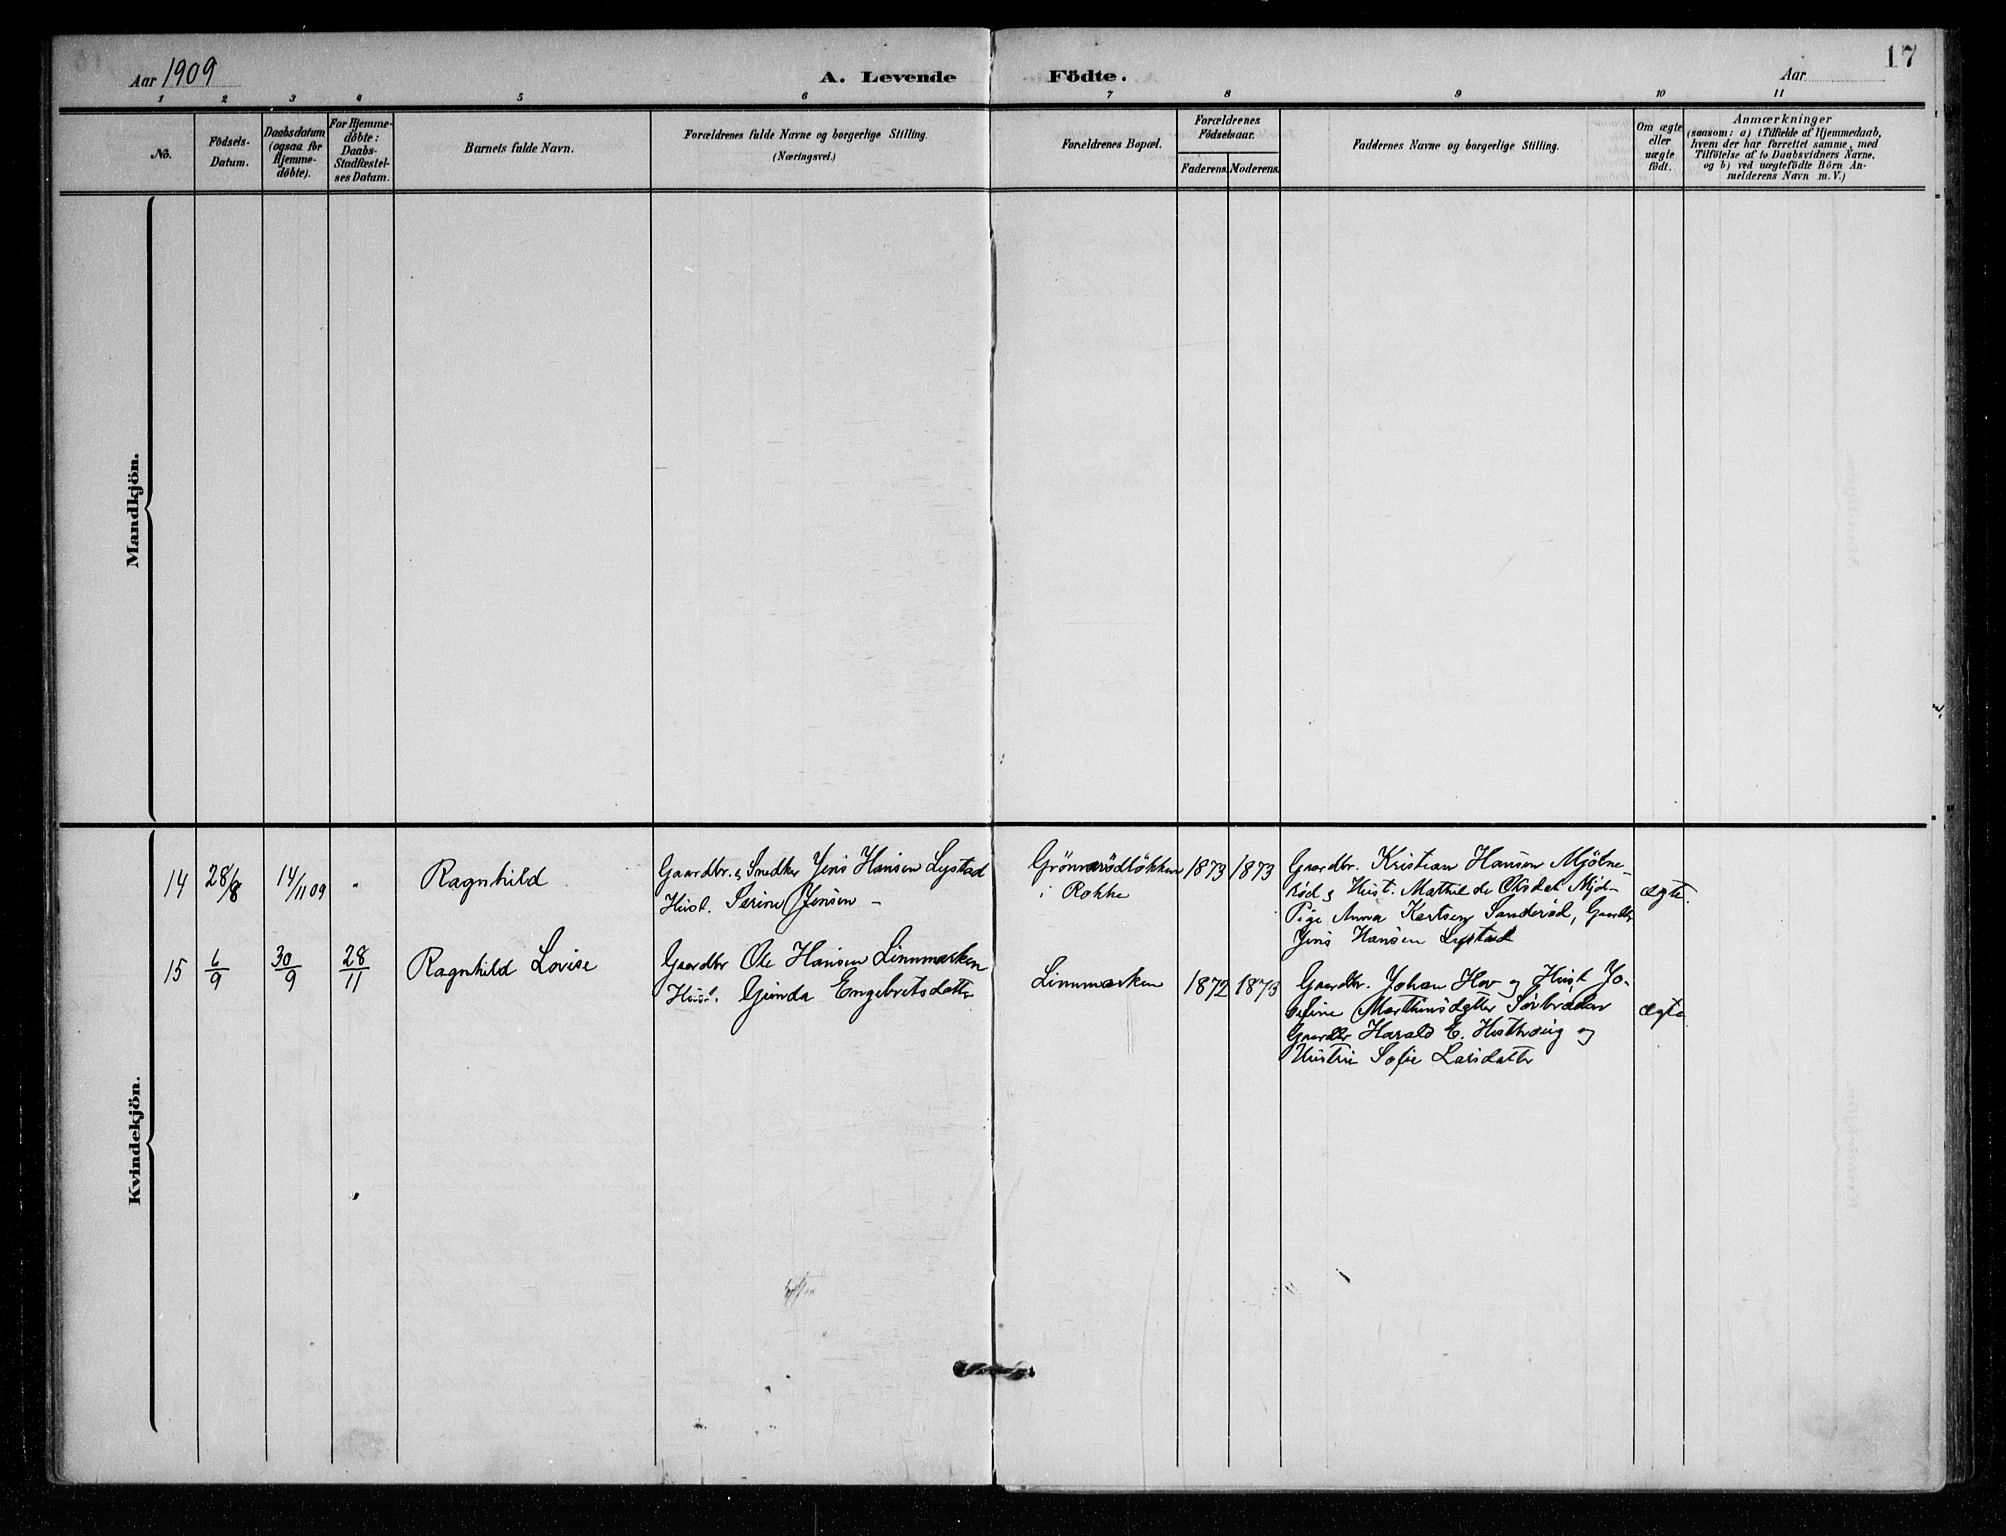 Aar 1909
A. Levende Födte.
Aar
17
1 2 3 4 5 6 7 8 9 10 11
No.
Födsels-
Datum.
Daabsdatum
(ogsaa for
Hjemme-
döbte).
For Hjemme-
döbte:
Daabs-
Stadfæstel-
ses Datum.
Barnets fulde Navn.
Forældrenes fulde Navne og borgerlige Stilling.
(Næringsvei.)
Forældrenes Bopæl.
Forældrenes
Födselsaar.
Faderens. Moderens.
Faddernes Navne og borgerlige Stilling.
Om ægte
eller
uægte
födt.
Anmærkninger
(saasom: a) i Tilfælde af Hjemmedaab,
hvem der har forrettet samme, med
Tilföielse af to Daabsvidners Navne,
og b) ved uægtefödte Börn An-
melderens Navn m. V.)
Mandkjön.
Kvindekjön.
14
28/8
14/11 09
"
Ragnhild
Gaardbr. & Snedker Jens Hansen Lystad
Hust. Serine Jensen –
Grönnerödlökken
i Rokke
1873
1873
Gaardbr. Kristian Hansen Mjölne-
röd & Hust. Mathilde Olsdat. Mjöl-
Pige Anna Karlsen Sanderöd, Gaardbr
Jens Hansen Lystad
ægte.
15
6/9
30/9
28/11
Ragnhild Lovise
Gaardbr Ole Hansen Linnmarken
Hust. Gunda Engebretsdatter
Linnmarken
1872
1873
Gaardbr. Johan Hov og Hust. Jo-
sefine Marthinsdatter Sörbröden
Gaardbr Harald E. og
Hustru Sofie Larsdatter
ægte